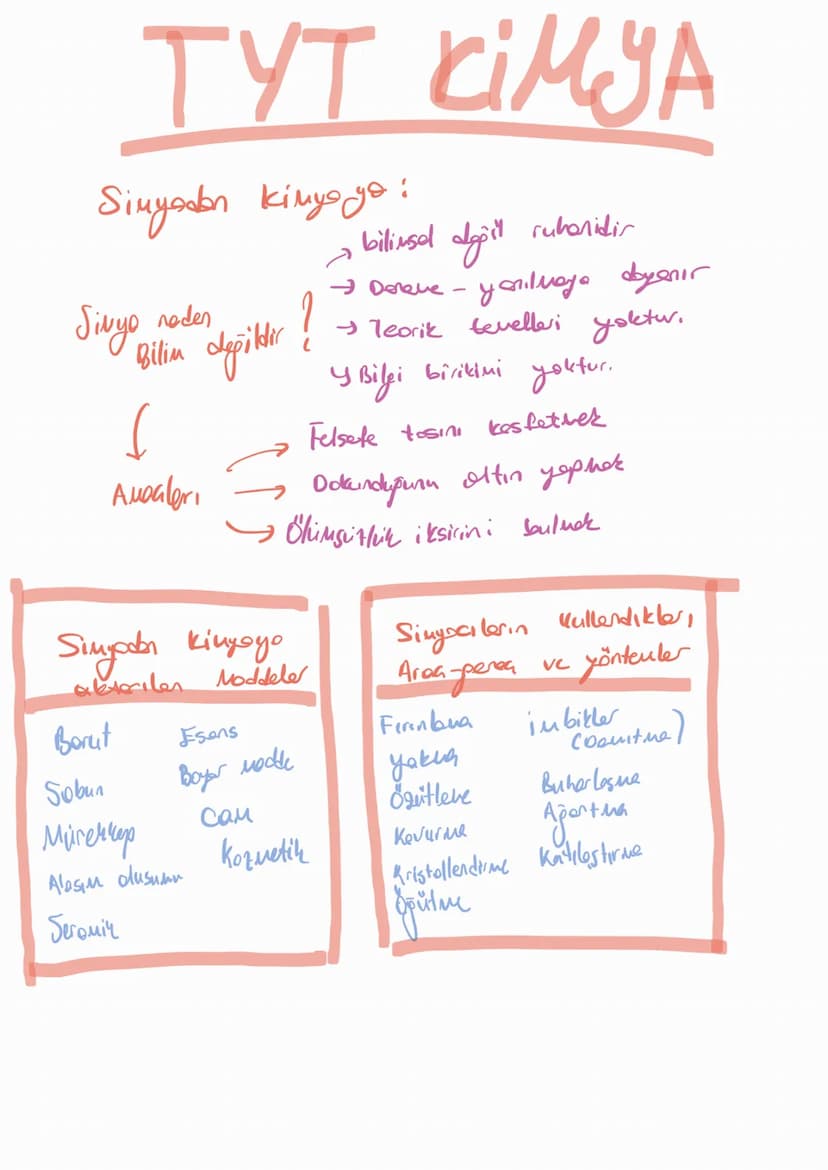 TYT KİMYA
Simyadan kimyaya :
Simya neden
Bilim değildir ?
bilimsel değil ruhanidir
→ Deneme - yanılmaya dayanır
→ Teorik temelleri yoktur.
Bilgi birikimi yoktur.
Amaçları
Felsefe taşını keşfetmek
Dokunduğunu altın yapmak
Ölümsüzlük iksirini bulmak
Simyadan kimyaya
aktarılan Maddeler
Barut
Esans
Boyar madde
Sabun
Cam
Mürekkep
Kozmetik
Alaşım oluşumu
Seramik
Simyacıların kullandıkları
Araç-gereç ve yöntemler
Fırınlama
Yakma
Özütleme
Kavurma
Kristallendirme
Öğütme
imbikler
(Damıtma)
Buharlaşma
Ağartma
Katılaştırma